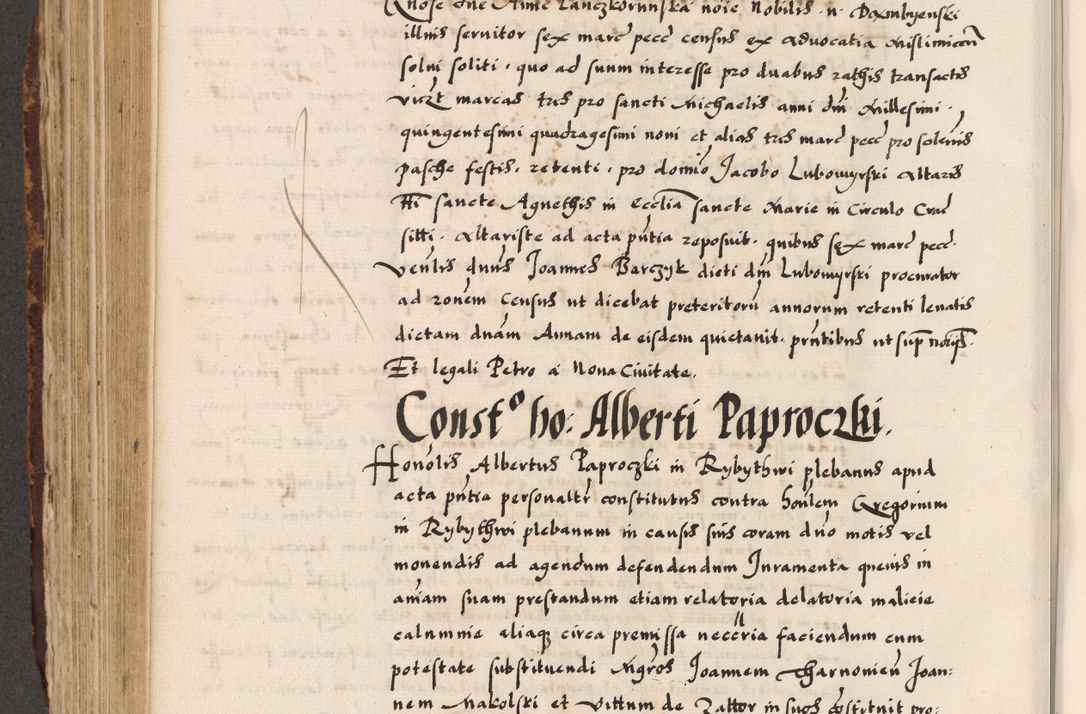 Gnose dne Anne Lanczkorunska noie Nobilis n Dambyenski
illius servitor sex marc pecc census ex advocatia Mislimicen
solui soliti, quo ad suum interesse pro duabus rathis transactis
vizt marcas tres pro sancti Michaelis anni dni Millesimi
quingentesimi quadragesimi noni et alias tres marc pecc pro solenis
pasche festis, retenti, pro domino Jacobo Lubomyrski altaris
tti sancte Agnethis in ecclia sancte Marie in Circulo Crac
sitti. Altariste ad acta pntia reposuit. quibus sex marc pecc.
venlis dnus Joannes Barczyk dicti dni Lubomyrski procurator
ad ronem census ut dicebat preteritoru annorum retenti levatis
dictam dnam Annam de eisdem quietavit. pntibus ut sup notijs.
Et legali Petro a Nona Civitate.
Const° ho: Alberti Paproczki.
Honolis Albertus Paproczki in Rybythwi plebanus apud
acta pntia personaltr constitutus contra honlem Gregorium
in Rybythwi plebanum in causis suis coram dno motis vel
movendis ad agendum defendendum Juramenta quevis in
aniam suam prestandum etiam relatoria delatoria malicie
calumnie aliaqz circa premissa neccria faciendum cum
potestate substituendi Mgros Joannem Tharnonien Joan:
nem Makolski et Vittum de Zattor in suos constituit pro: